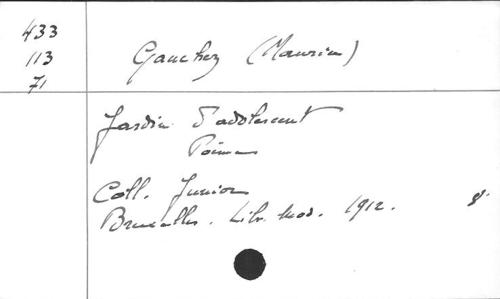 433
113
71
Gauchez (Maurice)
Jardin d'adolescent
Poèmes
Coll. Junior
Bruxelles. Libr. Mod. 1912. 8°